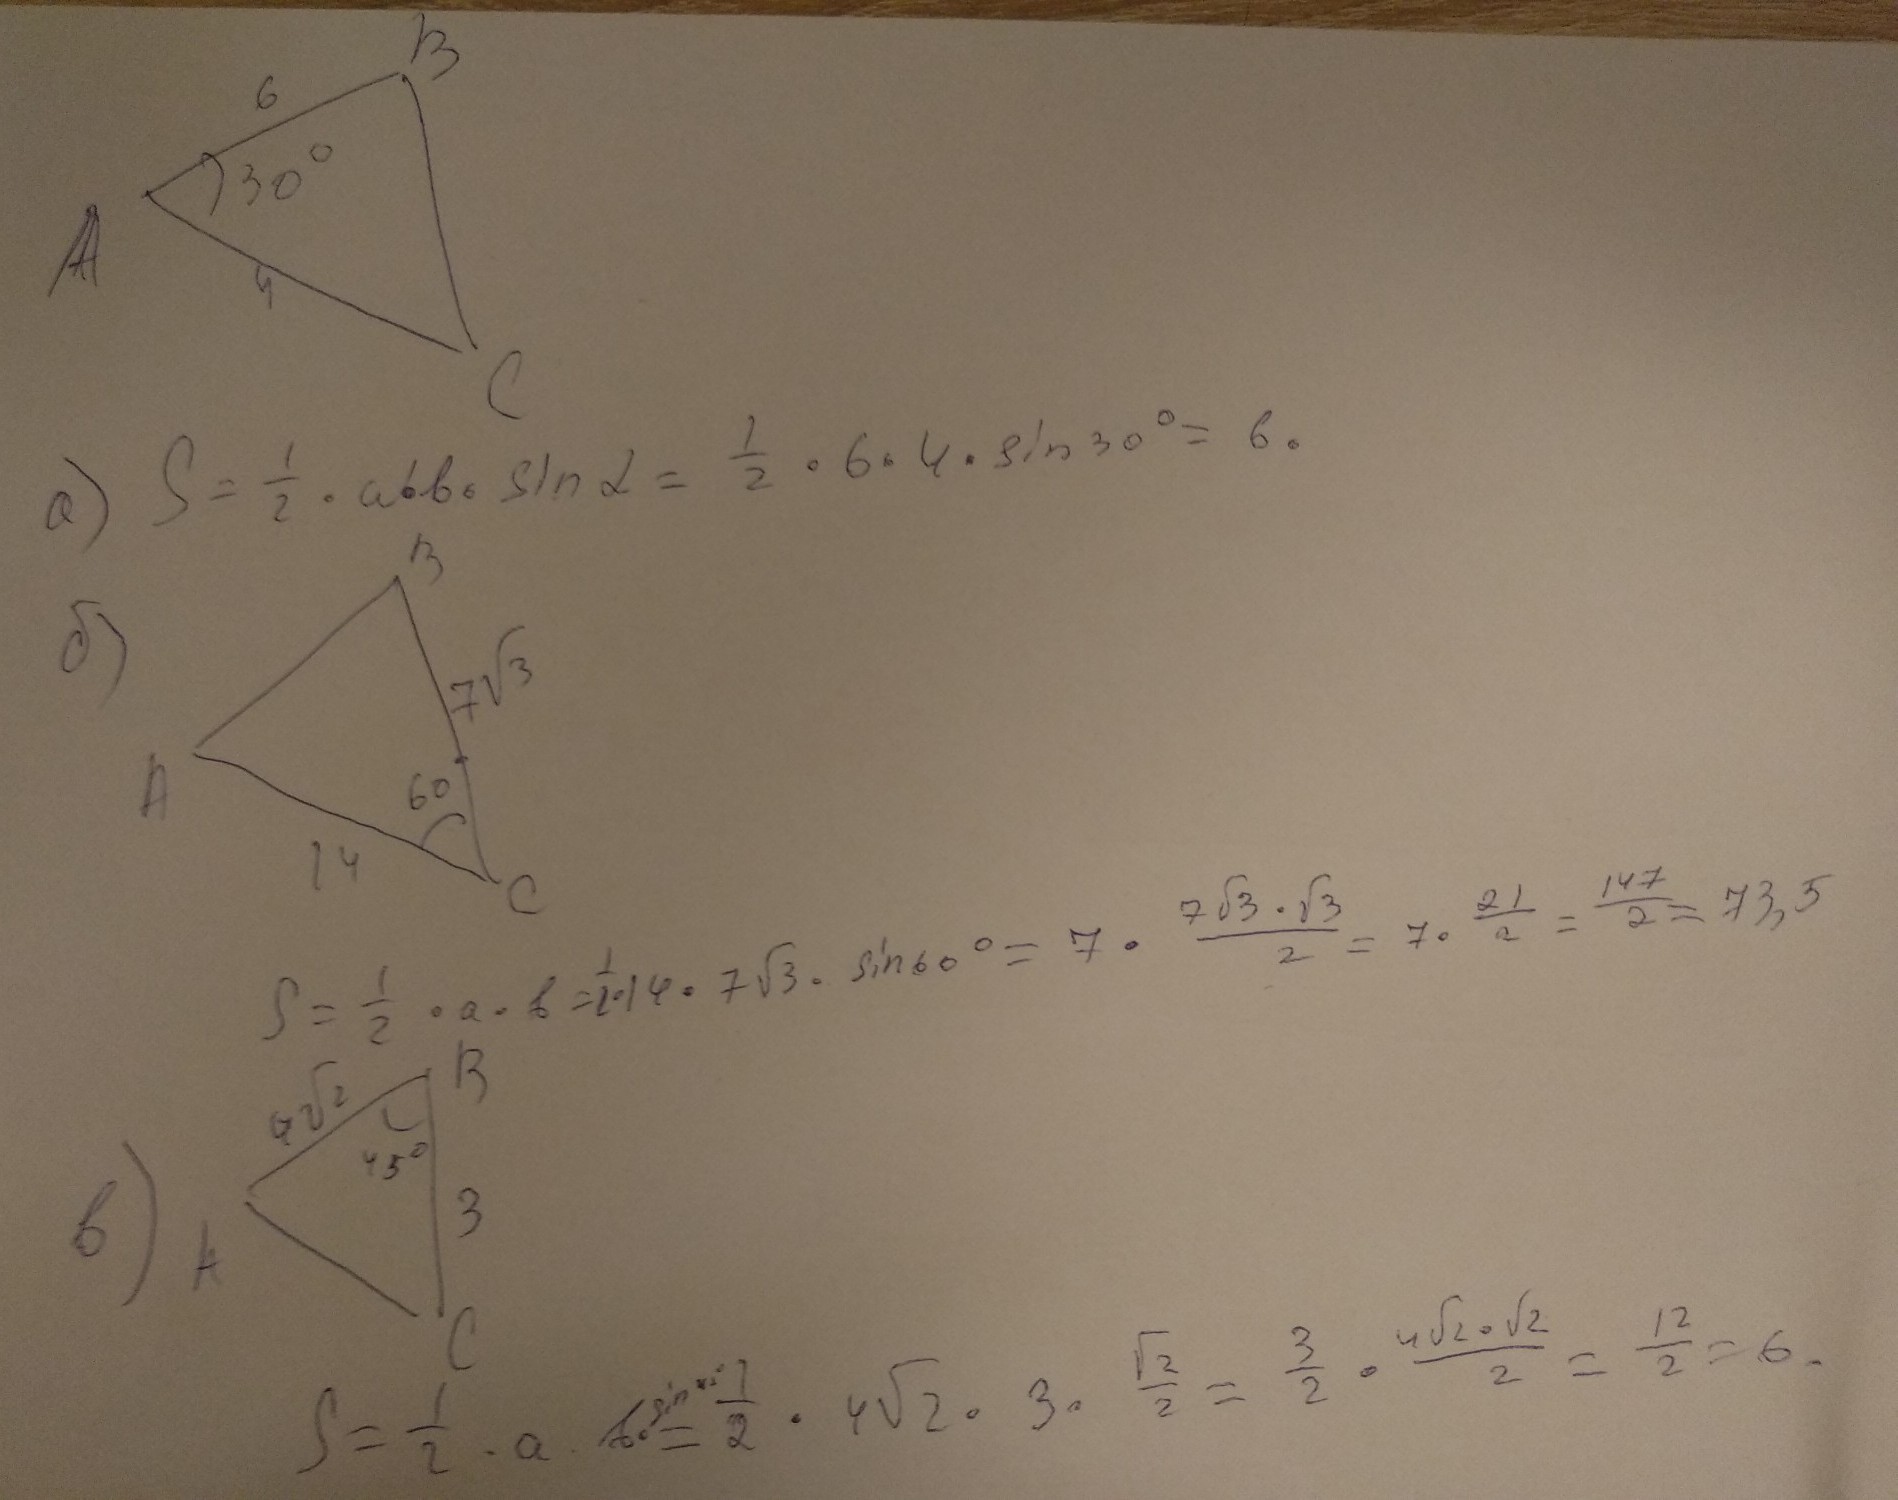 B
6
30°
A
4
C
а) S = 1/2 · a·b · sin α = 1/2 · 6 · 4 · sin 30° = 6.
б)
B
7√3
A
60
14
C
S = 1/2 · a · b = 1/2 · 14 · 7√3 · sin 60° = 7 · (7√3 · √3)/2 = 7 · 21/2 = 147/2 = 73,5
в)
4√2
B
45°
3
A
C
S = 1/2 · a · b · sin 45° = 1/2 · 4√2 · 3 · √2/2 = 3/2 · (4√2 · √2)/2 = 12/2 = 6.